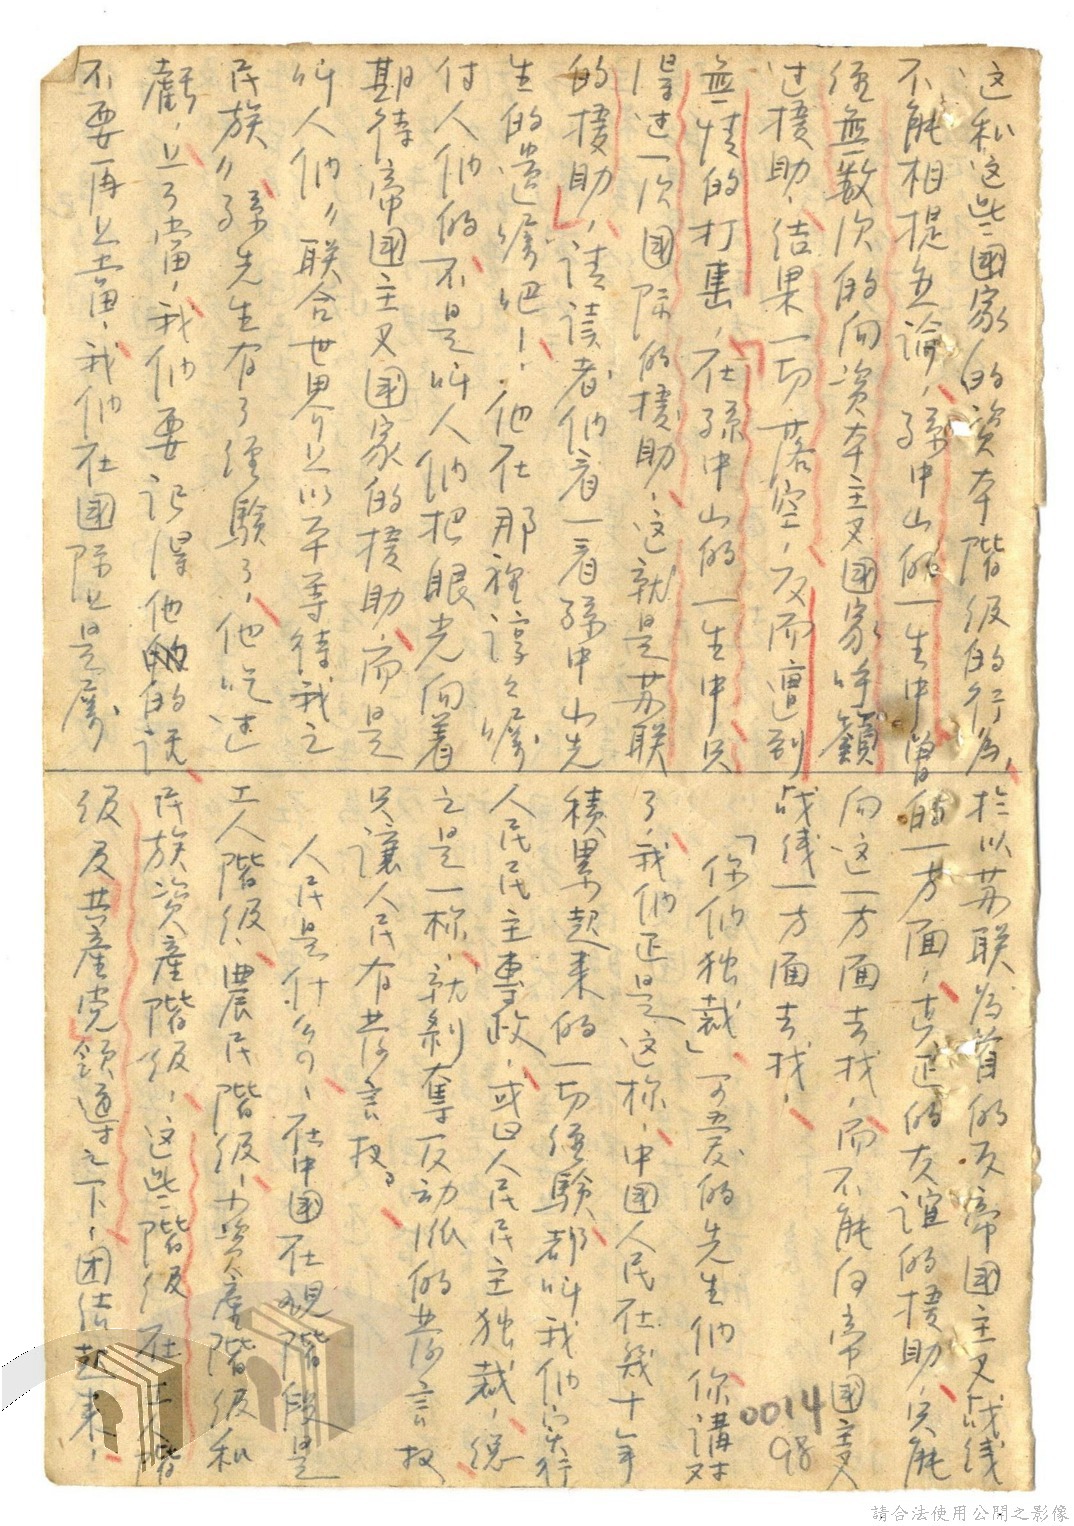 这和这些國家的資本階级的行为，
不能相提並论，孫中山的一生中曾
经無数次的向资本主义國家呼籲
过援助，结果一切落空，反而遭到
無情的打击，在孫中山的一生中只
得过一次國际的援助，这就是苏联
的援助，请读者们看一看孫中山先
生的遗嘱吧！他在那裡諄々嘱
付人们的不是叫人们把眼光向着
期待帝國主义國家的援助，而是
叫人们〃联合世界上以平等待我之
民族〃孫先生有了经驗了，他吃过
虧，上了當，我们要记得他的话
不要再上當，我们在國际上是属
於以苏联为首的反帝國主义战线
的一方面，真正的友谊的援助，只能
向这一方面去找，而不能向帝國主义
战线一方面去找，
「你们独裁」可爱的先生们你講对
了，我们正是这樣，中國人民在幾十年
積累起来的一切经驗都叫我们实行
人民民主專政，或曰人民民主独裁，總
之是一樣，就剥奪反动派的發言权
只讓人民有發言权。
人民是什么，在中國在现階段是
工人階级、農民階级，小资産階级和
民族资産階级，这些階级在工人階
级及共産党领導之下，团结起来，
0014
98
請合法使用公開之影像